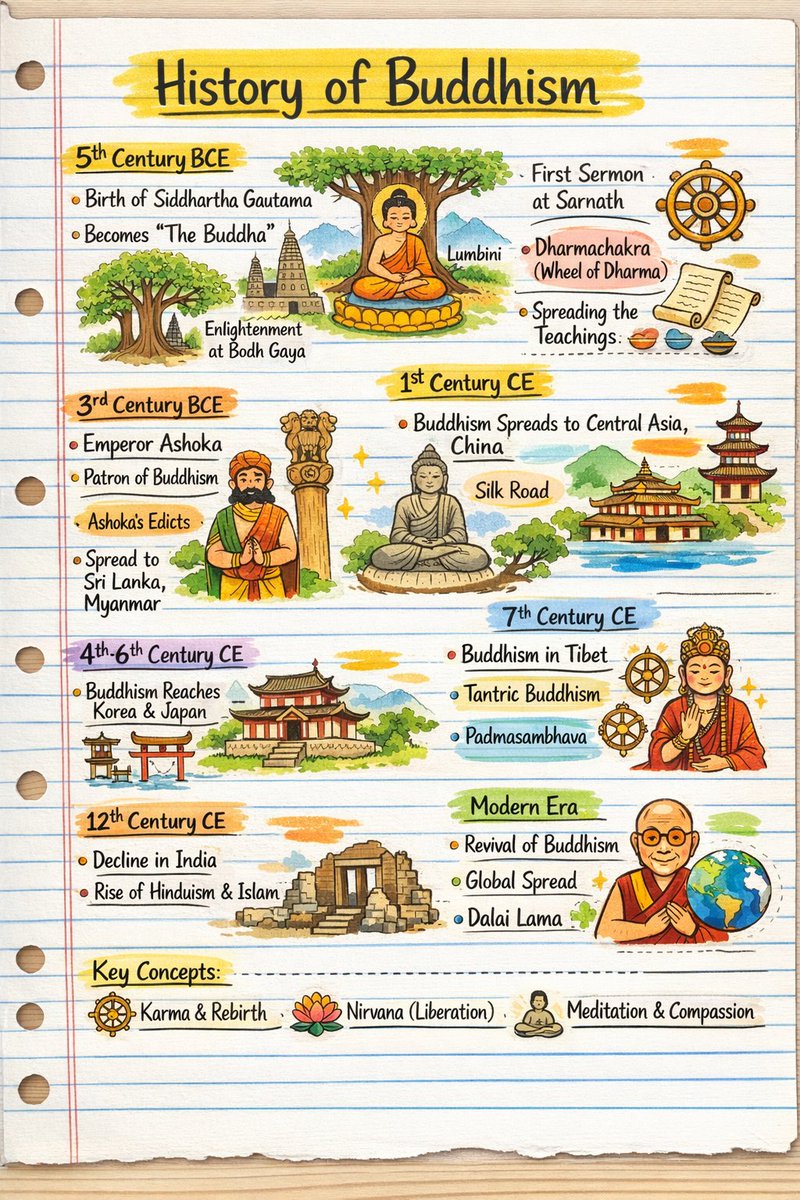 History of Buddhism
5th Century BCE
Birth of Siddhartha Gautama
Becomes "The Buddha"
Enlightenment
at Bodh Gaya
Lumbini
First Sermon
at Sarnath
Dharmachakra
(Wheel of Dharma)
Spreading the
Teachings:
3rd Century BCE
Emperor Ashoka
Patron of Buddhism
Ashoka's Edicts
Spread to
Sri Lanka,
Myanmar
1st Century CE
Buddhism Spreads to Central Asia,
China
Silk Road
4th-6th Century CE
Buddhism Reaches
Korea & Japan
7th Century CE
Buddhism in Tibet
Tantric Buddhism
Padmasambhava
12th Century CE
Decline in India
Rise of Hinduism & Islam
Modern Era
Revival of Buddhism
Global Spread
Dalai Lama
Key Concepts:
Karma & Rebirth
Nirvana (Liberation)
Meditation & Compassion